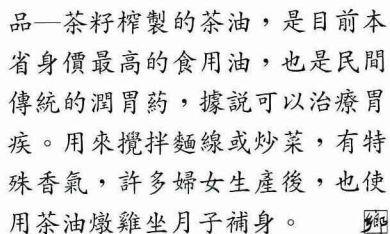 品—茶籽榨製的茶油，是目前本
省身價最高的食用油，也是民間
傳統的潤胃葯，據說可以治療胃
疾。用來攪拌麵線或炒菜，有特
殊香氣，許多婦女生產後，也使
用茶油燉雞坐月子補身。 鄉